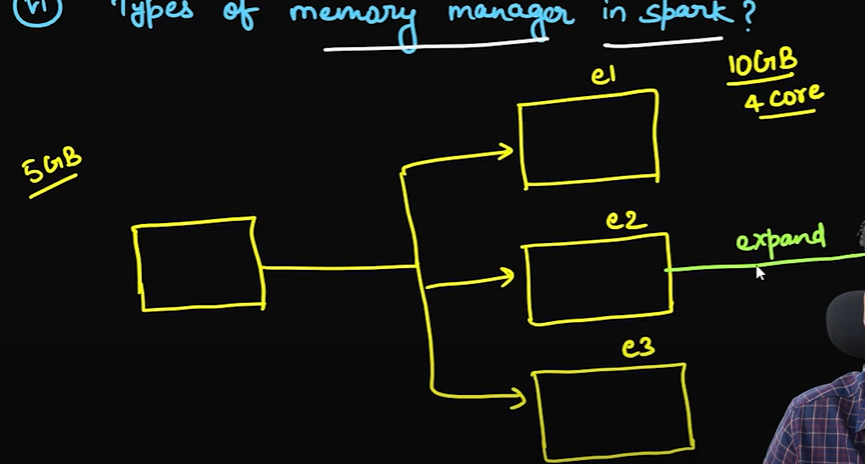 (vi) Types of memory manager in spark?
e1
10GB
4 core
5GB
e2
expand
e3